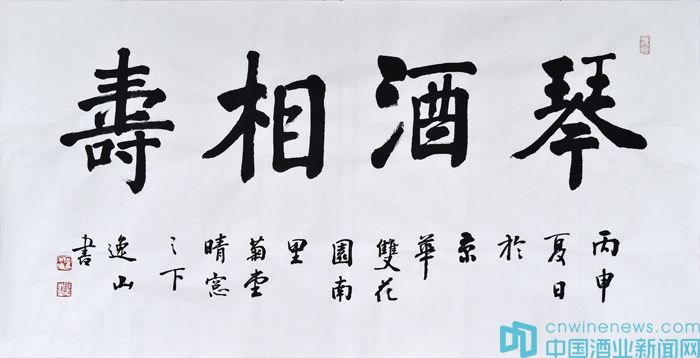 琴酒相壽
丙申
夏日
於
京
華
雙花
園南
里
菊堂
晴窓
之下
逸山
書
cnwinenews.com
中国酒业新闻网